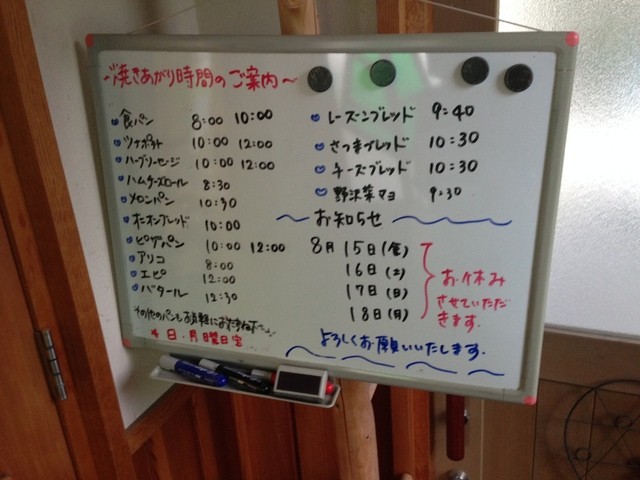 ～焼きあがり時間のご案内～
食パン 8:00 10:00
ツナポテト 10:00 12:00
ハーブソーセージ 10:00 12:00
ハムチーズロール 8:30
メロンパン 10:30
オニオンブレッド 10:00
ピザパン 10:00 12:00
アリコ 8:00
エピ 12:00
バタール 12:30
その他のパンもお気軽におたずね下さい
日・月曜日定
レーズンブレッド 9:40
さつまブレッド 10:30
チーズブレッド 10:30
野沢菜マヨ 9:30
お知らせ
8月15日(金)
16日(土)
17日(日)
18日(月)
お休み
させていただ
きます。
よろしくお願いいたします。